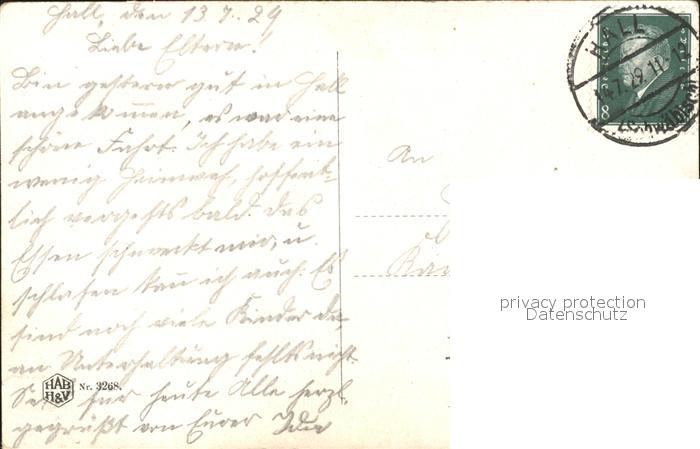 Hall, den 13.7.29
Liebe Eltern!
Bin gestern gut in Hall
angekommen, es war eine
schöne Fahrt. Ich habe ein
wenig Heimweh, hoffent-
lich vergehts bald. Das
Essen schmeckt mir, u.
schlafen kann ich auch. Es
sind noch viele Kinder da,
an Unterhaltung fehlts nicht.
für heute Alle herzl.
gegrüßt von Eurer
HAB
H&V
Nr. 3268.
An
HALL
8
privacy protection
Datenschutz